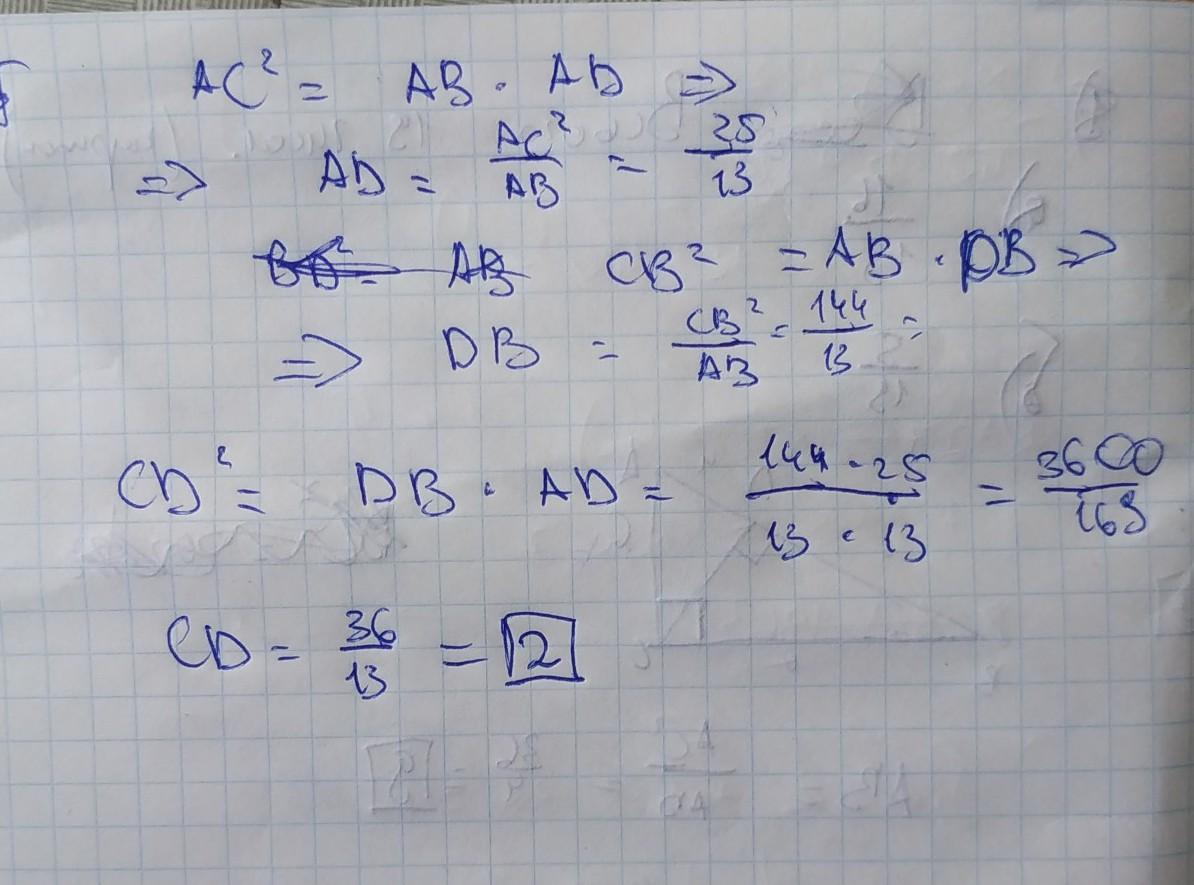 AC² = AB · AD ⇒
⇒ AD = AC²/AB = 25/13
CB² = AB · DB ⇒
⇒ DB = CB²/AB = 144/13 =
CD² = DB · AD = 144 · 25/13 · 13 = 3600/169
CD = 36/13 = 2